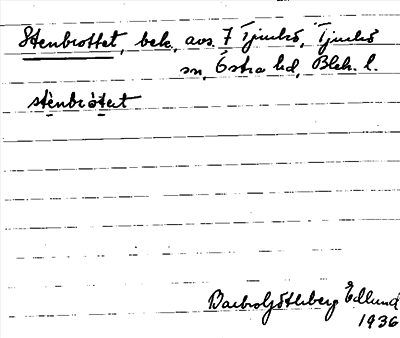 Stenbrottet, bek, avs. 7 Tjurkö, Tjurkö
sn, Östra hd, Blek. l.
stènbrótət
Barbro Göthberg Edlund
1936